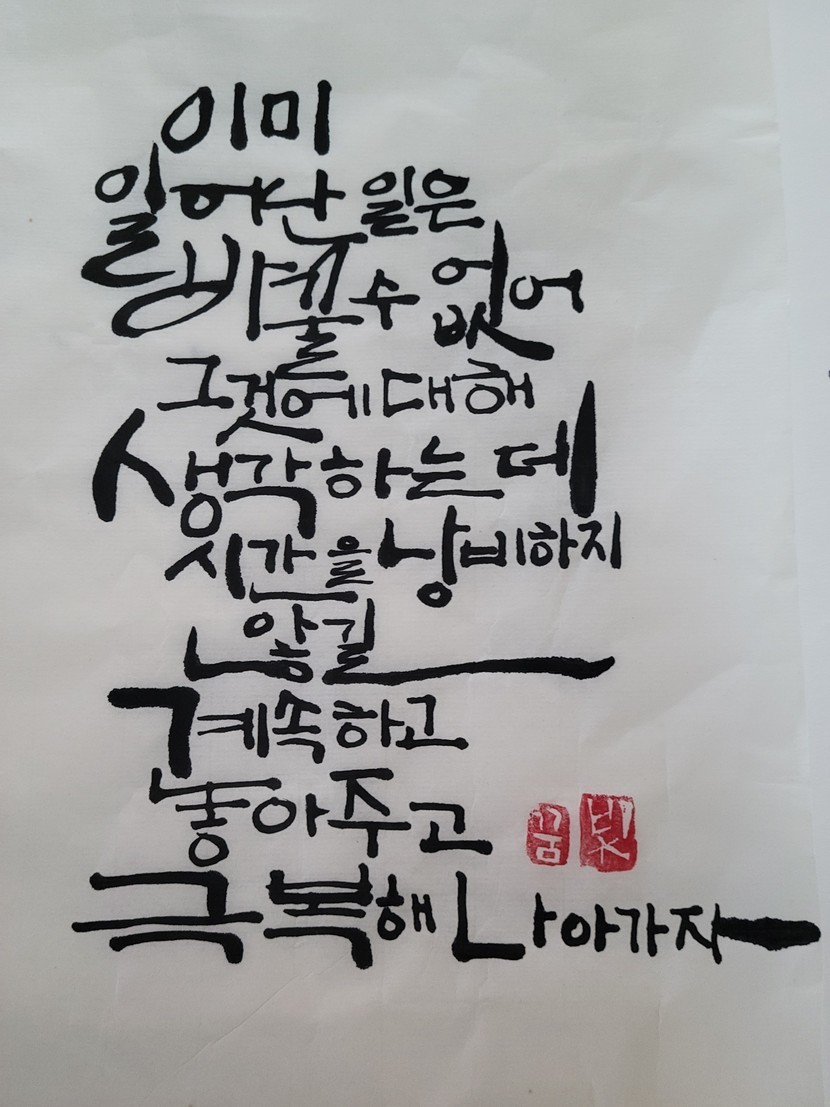 이미
일어난 일은
바꿀 수 없어
그것에 대해
생각하는 데
시간을 낭비하지
않길
계속하고
놓아주고
꿈 빛
극복해 나아가자